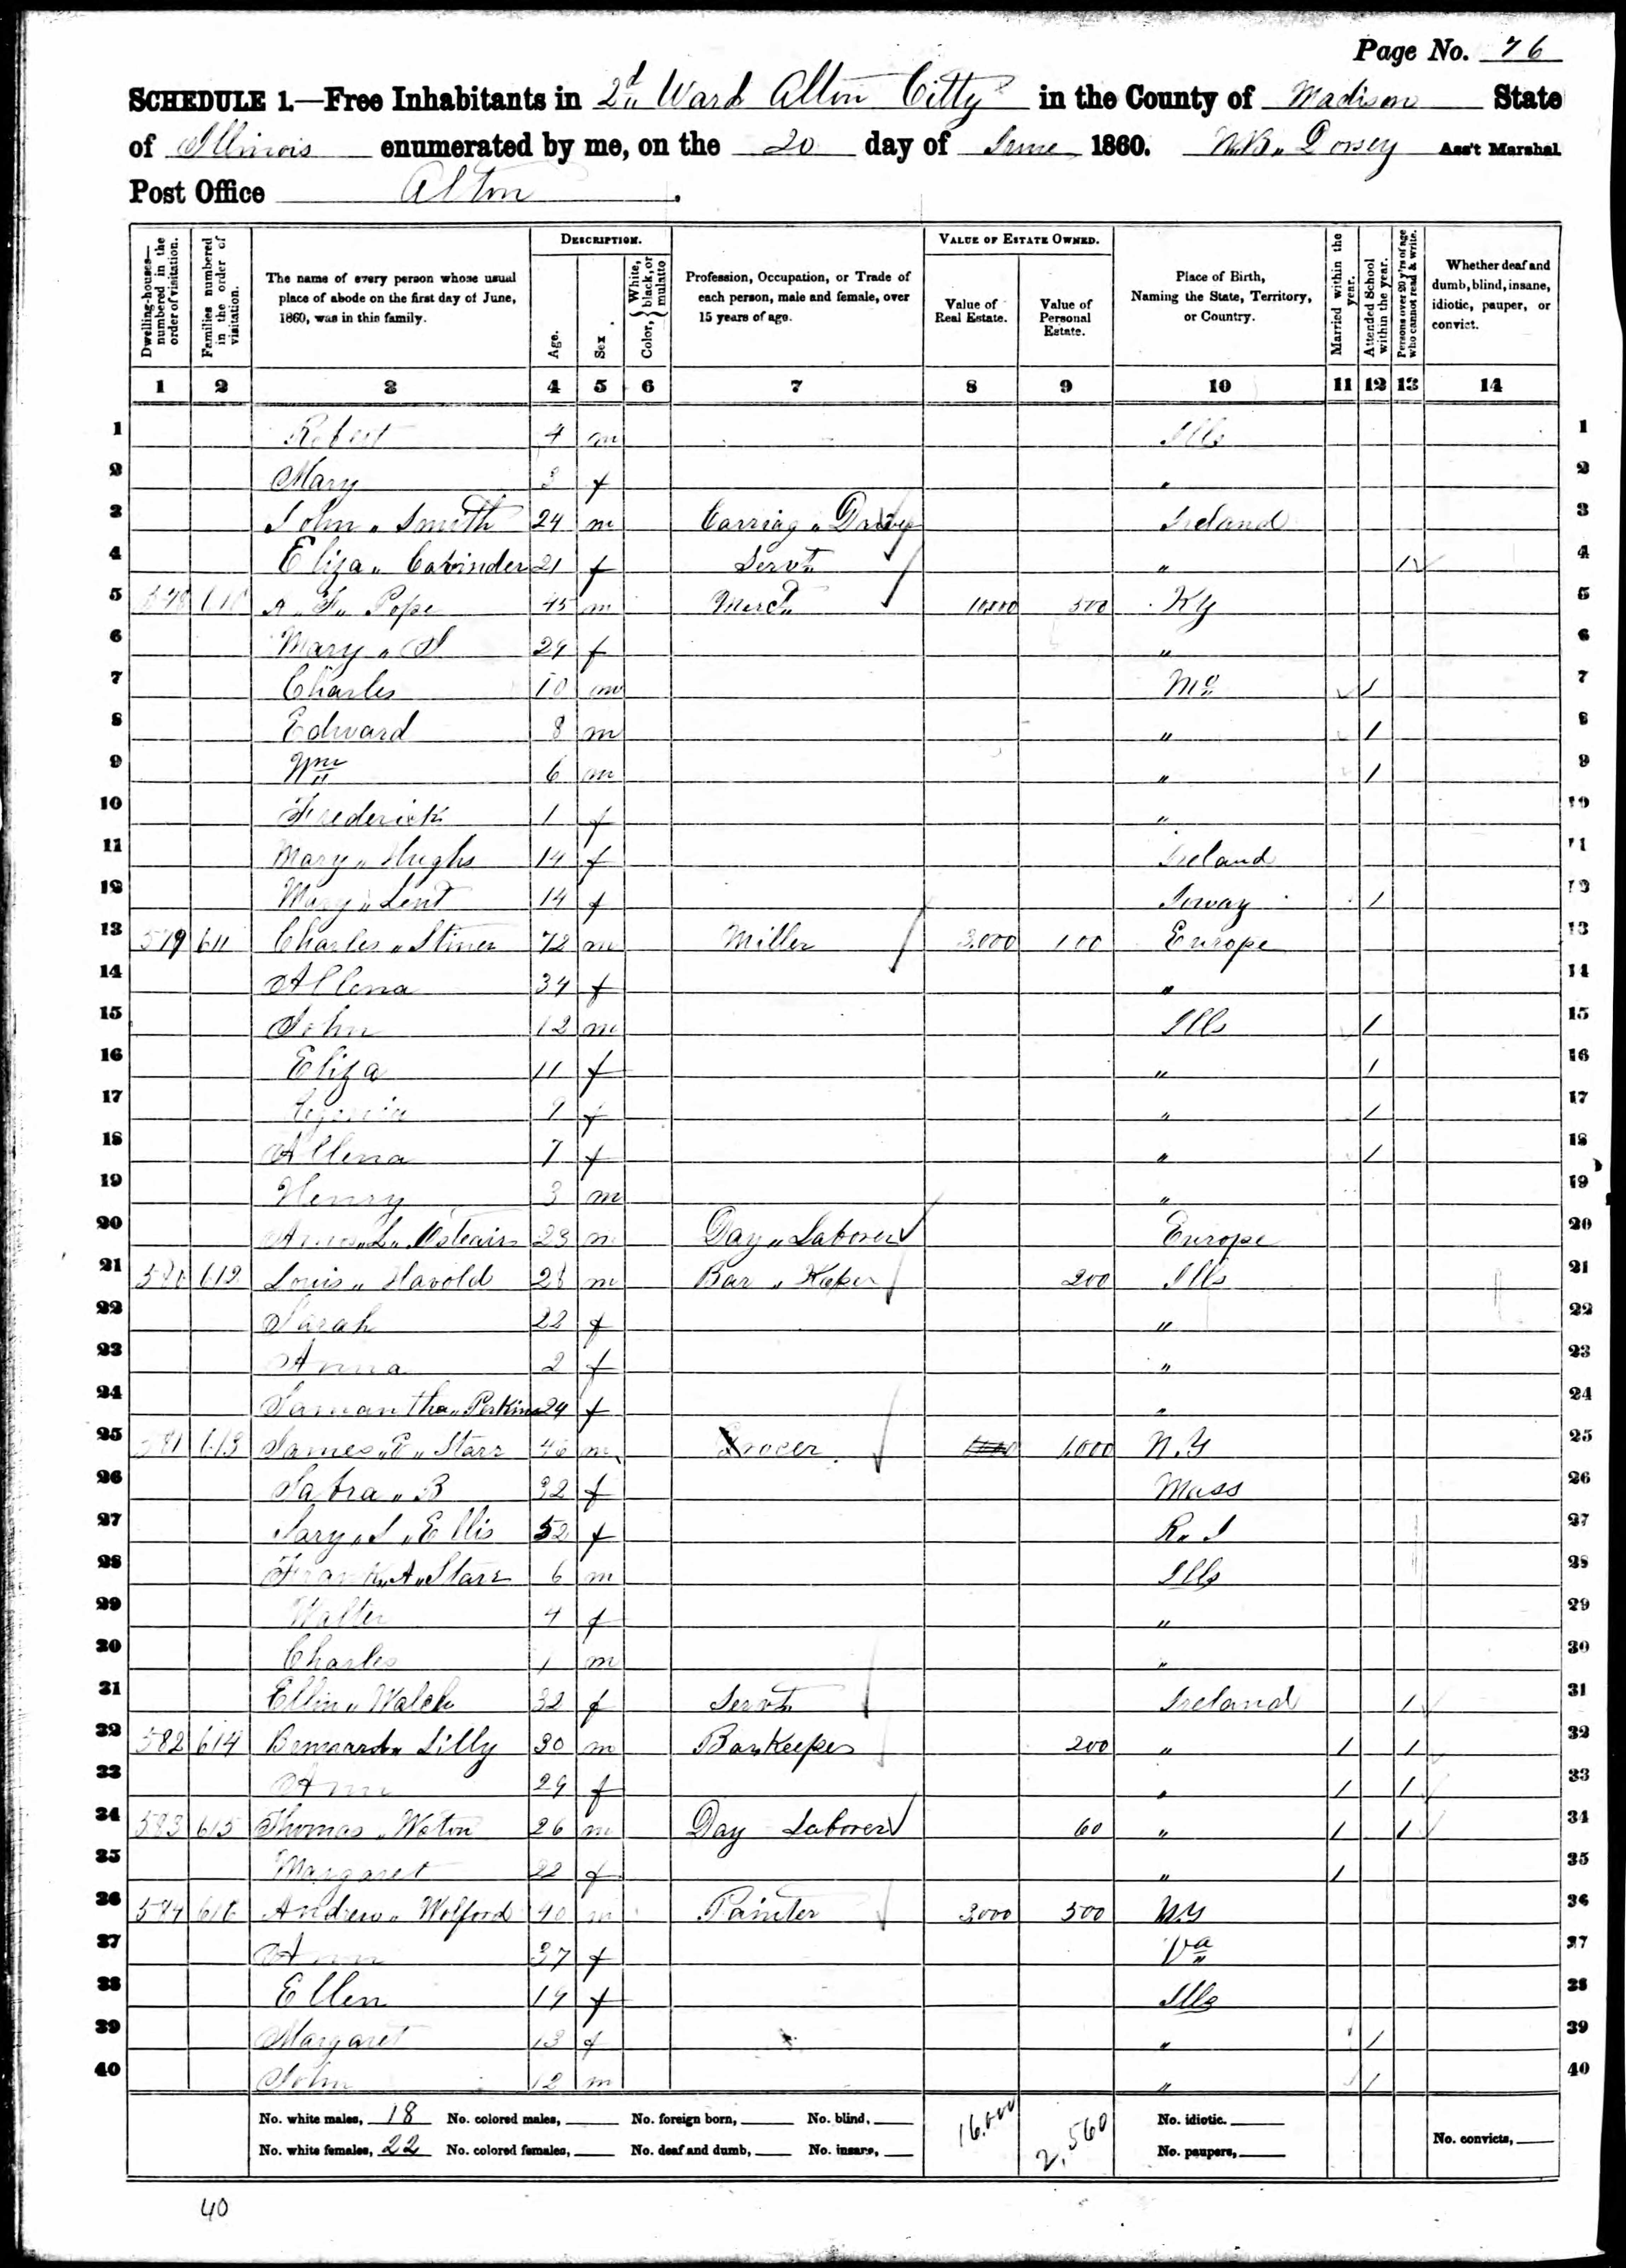 Page No. 76
SCHEDULE 1.—Free Inhabitants in 2d Ward Alton Citty in the County of Madison State
of Illinois enumerated by me, on the 20 day of June 1860. Dorsey Ass't Marshal
Post Office Alton.
Dwelling-houses—numbered in the order of visitation.
Families numbered in the order of visitation.
The name of every person whose usual place of abode on the first day of June, 1860, was in this family.
DESCRIPTION.
Age.
Sex.
Color, { White, black, or mulatto }
Profession, Occupation, or Trade of each person, male and female, over 15 years of age.
VALUE OF ESTATE OWNED.
Value of Real Estate.
Value of Personal Estate.
Place of Birth, Naming the State, Territory, or Country.
Married within the year.
Attended School within the year.
Persons over 20 y'rs of age who cannot read & write.
Whether deaf and dumb, blind, insane, idiotic, pauper, or convict.
1 2 3 4 5 6 7 8 9 10 11 12 13 14
1 Robert 4 m Ills 1
2 Mary 3 f " 2
3 John " Smith 24 m Carriag " Ireland 3
4 Eliza " 21 f Servt " 1 4
5 A " F " Pope 45 m Merct 500 Ky 5
6 Mary " 29 f " 6
7 Charles 10 m Mo 1 7
8 Edward 8 m " 1 8
9 Wm 6 m " 1 9
10 Frederick 1 f " 10
11 Mary " Hughs 14 f Ireland 11
12 Mary " Lent 14 f 1 12
13 579 611 Charles " Stiner 72 m Miller 3,000 100 Europe 13
14 Allena 34 f " 14
15 John 12 m Ills 1 15
16 Eliza 11 f " 1 16
17 9 f " 1 17
18 Allena 7 f " 1 18
19 Henry 3 m " 19
20 23 m Day " Laborer Europe 20
21 580 612 Louis " Havold 28 m Bar " Keper 200 Ills 21
22 Sarah 22 f " 22
23 Anna 2 f " 23
24 Samantha " Perkins 24 f " 24
25 581 613 James " " Starr 46 m Grocer 1,000 N.Y 25
26 Sabra " B 32 f Mass 26
27 " S " Ellis 52 f R. I 27
28 Frank " A " Starr 6 m Ills 28
29 Walter 4 f " 29
30 Charles 1 m " 30
31 Ellin " Walch 32 f Servt Ireland 1 31
32 582 614 Bernard " Lilly 30 m BarKeeper 200 " 1 1 32
33 Ann 29 f " 1 1 33
34 583 615 Thomas " Woton 26 m Day Laborer 60 " 1 1 34
35 Margaret 22 f " 1 35
36 584 616 Andrew " Wolford 40 m Painter 3,000 500 N.Y 36
37 Ann 37 f Va 37
38 Ellen 14 f Ills 38
39 Margaret 13 f " 1 39
40 John 12 m " 1 40
No. white males, 18 No. colored males, No. foreign born, No. blind, 16.000 2,560 No. idiotic.
No. white females, 22 No. colored females, No. deaf and dumb, No. insane, No. paupers, No. convicts,
40